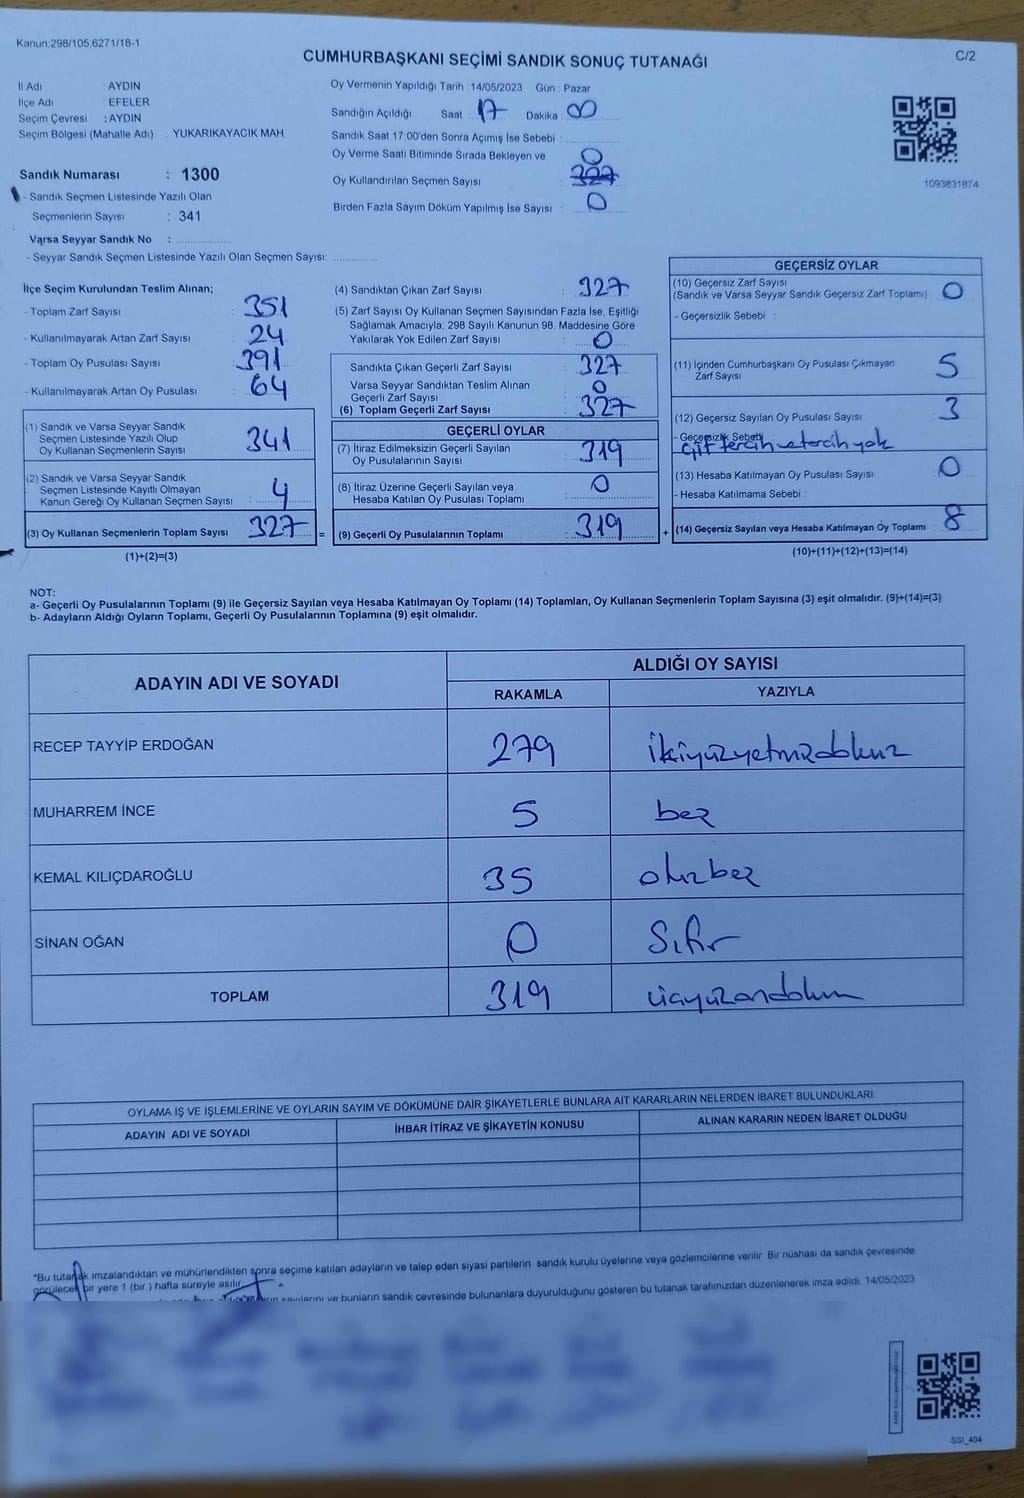 Kanun:298/105,6271/18-1
CUMHURBAŞKANI SEÇİMİ SANDIK SONUÇ TUTANAĞI
C/2
İl Adı : AYDIN
İlçe Adı : EFELER
Seçim Çevresi : AYDIN
Seçim Bölgesi (Mahalle Adı) : YUKARIKAYACIK MAH
Oy Vermenin Yapıldığı Tarih : 14/05/2023 Gün : Pazar
Sandığın Açıldığı Saat : 17 Dakika : 00
Sandık Saat 17:00'den Sonra Açımış İse Sebebi :
Oy Verme Saati Bitiminde Sırada Bekleyen ve
Oy Kullandırılan Seçmen Sayısı : 0 327
Birden Fazla Sayım Döküm Yapılmış İse Sayısı : 0
1093831874
Sandık Numarası : 1300
- Sandık Seçmen Listesinde Yazılı Olan
Seçmenlerin Sayısı : 341
Varsa Seyyar Sandık No :
- Seyyar Sandık Seçmen Listesinde Yazılı Olan Seçmen Sayısı:
İlçe Seçim Kurulundan Teslim Alınan;
- Toplam Zarf Sayısı : 351
- Kullanılmayarak Artan Zarf Sayısı : 24
- Toplam Oy Pusulası Sayısı : 391
- Kullanılmayarak Artan Oy Pusulası : 64
(1) Sandık ve Varsa Seyyar Sandık
Seçmen Listesinde Yazılı Olup
Oy Kullanan Seçmenlerin Sayısı : 341
(2) Sandık ve Varsa Seyyar Sandık
Seçmen Listesinde Kayıtlı Olmayan
Kanun Gereği Oy Kullanan Seçmen Sayısı : 4
(3) Oy Kullanan Seçmenlerin Toplam Sayısı : 327 =
(1)+(2)=(3)
(4) Sandıktan Çıkan Zarf Sayısı : 327
(5) Zarf Sayısı Oy Kullanan Seçmen Sayısından Fazla İse, Eşitliği
Sağlamak Amacıyla; 298 Sayılı Kanunun 98. Maddesine Göre
Yakılarak Yok Edilen Zarf Sayısı : 0
Sandıkta Çıkan Geçerli Zarf Sayısı : 327
Varsa Seyyar Sandıktan Teslim Alınan
Geçerli Zarf Sayısı : 0
(6) Toplam Geçerli Zarf Sayısı : 327
GEÇERLİ OYLAR
(7) İtiraz Edilmeksizin Geçerli Sayılan
Oy Pusulalarının Sayısı : 319
(8) İtiraz Üzerine Geçerli Sayılan veya
Hesaba Katılan Oy Pusulası Toplamı : 0
(9) Geçerli Oy Pusulalarının Toplamı : 319 +
GEÇERSİZ OYLAR
(10) Geçersiz Zarf Sayısı
(Sandık ve Varsa Seyyar Sandık Geçersiz Zarf Toplamı) : 0
- Geçersizlik Sebebi :
(11) İçinden Cumhurbaşkanı Oy Pusulası Çıkmayan
Zarf Sayısı : 5
(12) Geçersiz Sayılan Oy Pusulası Sayısı : 3
- Geçersizlik Sebebi çift tercih ve tercih yok
(13) Hesaba Katılmayan Oy Pusulası Sayısı : 0
- Hesaba Katılmama Sebebi :
(14) Geçersiz Sayılan veya Hesaba Katılmayan Oy Toplamı : 8
(10)+(11)+(12)+(13)=(14)
NOT:
a- Geçerli Oy Pusulalarının Toplamı (9) ile Geçersiz Sayılan veya Hesaba Katılmayan Oy Toplamı (14) Toplamları, Oy Kullanan Seçmenlerin Toplam Sayısına (3) eşit olmalıdır. (9)+(14)=(3)
b- Adayların Aldığı Oyların Toplamı, Geçerli Oy Pusulalarının Toplamına (9) eşit olmalıdır.
ADAYIN ADI VE SOYADI
ALDIĞI OY SAYISI
RAKAMLA YAZIYLA
RECEP TAYYİP ERDOĞAN 279 ikiyüzyetmişdokuz
MUHARREM İNCE 5 beş
KEMAL KILIÇDAROĞLU 35 otuzbeş
SİNAN OĞAN 0 Sıfır
TOPLAM 319 üçyüzondokuz
OYLAMA İŞ VE İŞLEMLERİNE VE OYLARIN SAYIM VE DÖKÜMÜNE DAİR ŞİKAYETLERLE BUNLARA AİT KARARLARIN NELERDEN İBARET BULUNDUKLARI
ADAYIN ADI VE SOYADI İHBAR İTİRAZ VE ŞİKAYETİN KONUSU ALINAN KARARIN NEDEN İBARET OLDUĞU
*Bu tutanak imzalandıktan ve mühürlendikten sonra seçime katılan adayların ve talep eden siyasi partilerin sandık kurulu üyelerine veya gözlemcilerine verilir. Bir nüshası da sandık çevresinde
görülecek bir yere 1 (bir ) hafta süreyle asılır.
sayılarını ve bunların sandık çevresinde bulunanlara duyurulduğunu gösteren bu tutanak tarafımızdan düzenlenerek imza edildi. 14/05/2023
SSI_404